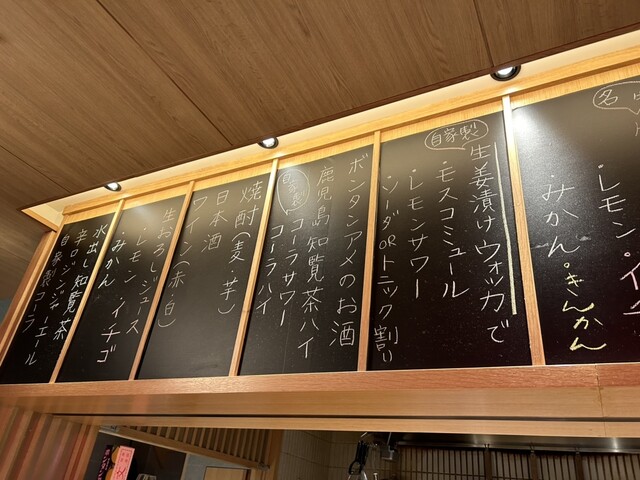 ・レモン・イ
・みかん。きんかん
自家製
生姜漬けウォッカで
・モスコミュール
・レモンサワー
・ソーダorトニック割り
ボンタンアメのお酒
鹿児島知覧茶ハイ
自家製
コーラサワー
コーラハイ
焼酎(麦・芋)
日本酒
ワイン(赤・白)
生おろしジュース
・レモン・イチゴ
・みかん
水出し知覧茶
辛口ジンジャーエール
自家製コーラ